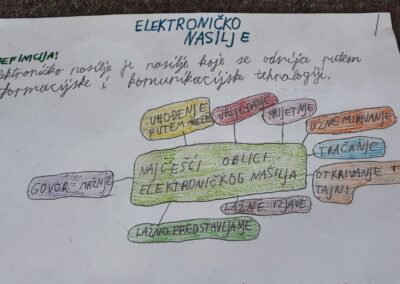 ELEKTRONIČKO
NASILJE
DEFINICIJA!
Elektroničko nasilje je nasilje koje se odvija putem
informacijske i komunikacijske tehnologije.
UHOĐENJE
PUTEM MREŽE
VRIJEĐANJE
PRIJETNJE
UZNEMIRIVANJE
TRAČANJE
OTKRIVANJE
TAJNI
NAJČEŠĆI OBLICI
ELEKTRONIČKOG NASILJA
GOVOR MRŽNJE
LAŽNE IZJAVE
LAŽNO PREDSTAVLJANJE